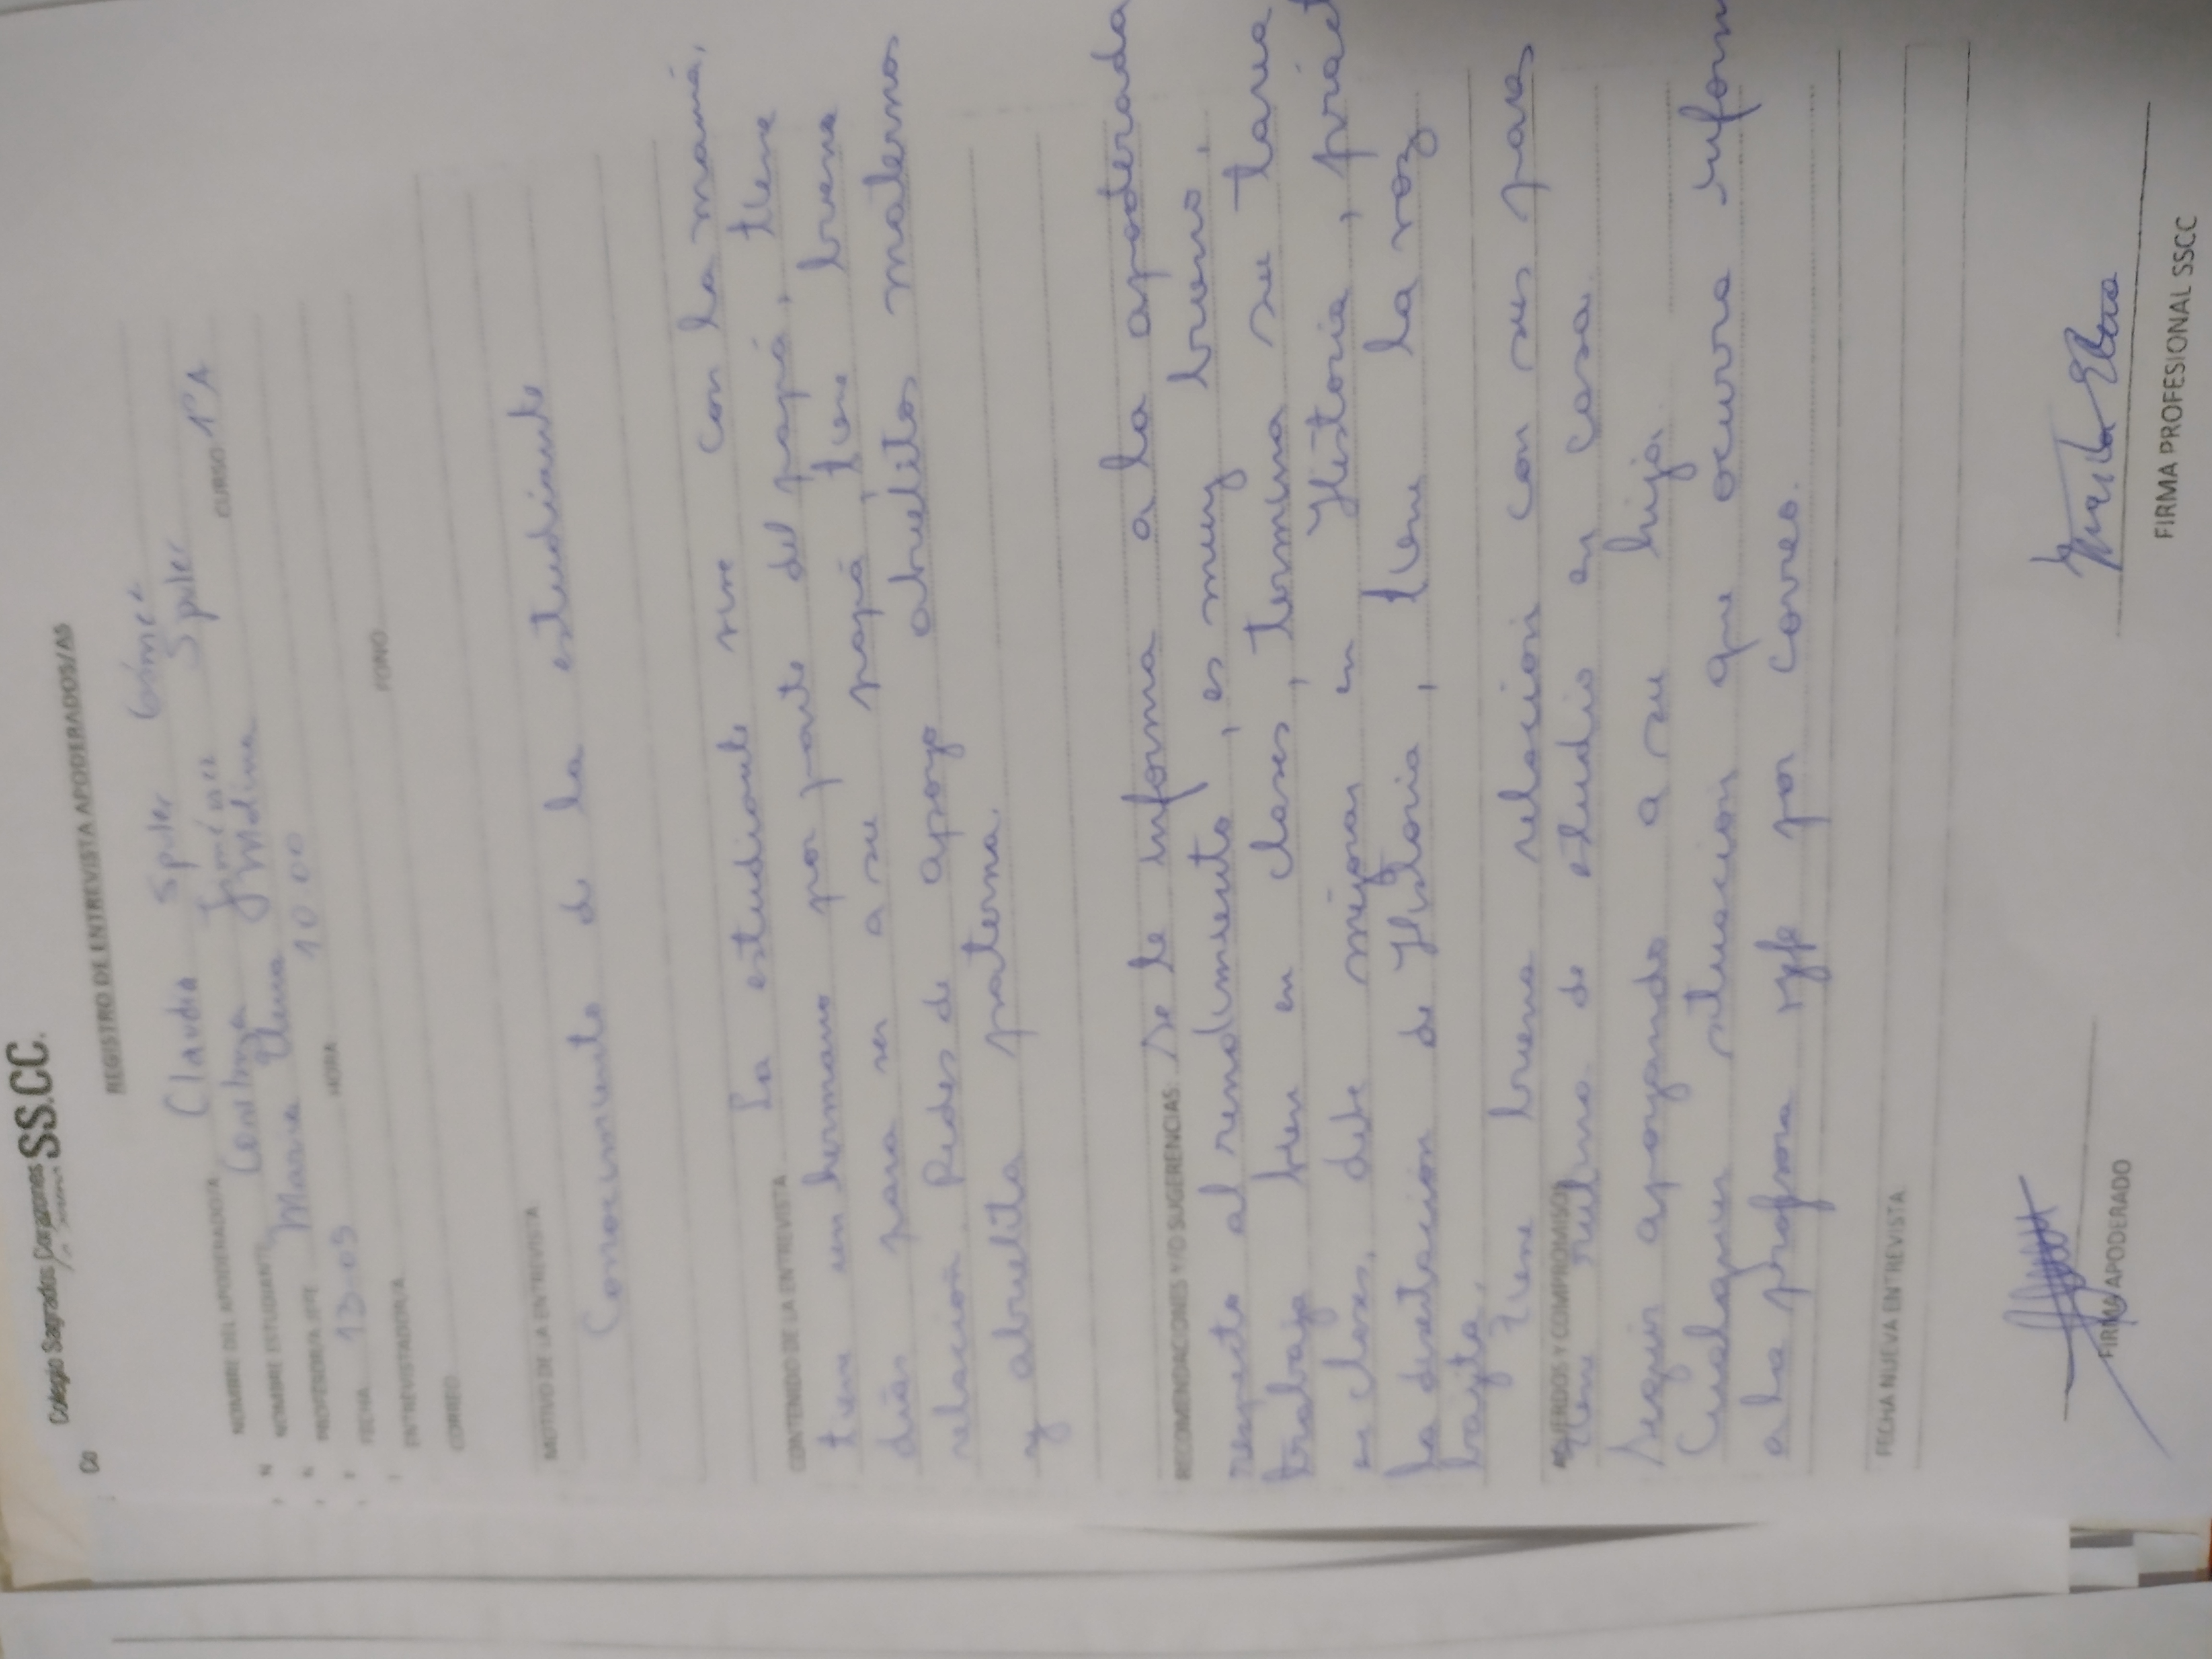 Colegio Sagrados Corazones SS.CC.
Co
REGISTRO DE ENTREVISTA APODERADOS/AS
NOMBRE DEL APODERADO/A Claudia Spuler Gómez
NOMBRE ESTUDIANTE Jiménez Spuler CURSO 1°A
PROFESOR/A JEFE María Elena Molina
FECHA 13-05 HORA 10 00
ENTREVISTADOR/A FONO
CORREO
MOTIVO DE LA ENTREVISTA
Conocimiento de la estudiante
CONTENIDO DE LA ENTREVISTA La estudiante vive con la mamá,
tiene un hermano por parte del papá, tiene
días para ver a su papá, tiene buena
relación. Redes de apoyo abuelitos maternos
y abuelita paterna.
RECOMENDACIONES Y/O SUGERENCIAS Se le informa a la apoderada
respecto al rendimiento, es muy bueno,
trabaja bien en clases, termina su tarea
en clases, debe mejorar en Historia,
la disertación de Historia, tiene la voz
bajita.
Tiene buena relación con sus pares
ACUERDOS Y COMPROMISOS
Tiene rutina de estudio en casa.
Seguir apoyando a su hija.
Cualquier situación que ocurra inform
a la profesora jefe por correo.
FECHA NUEVA ENTREVISTA
FIRMA APODERADO
FIRMA PROFESIONAL SSCC